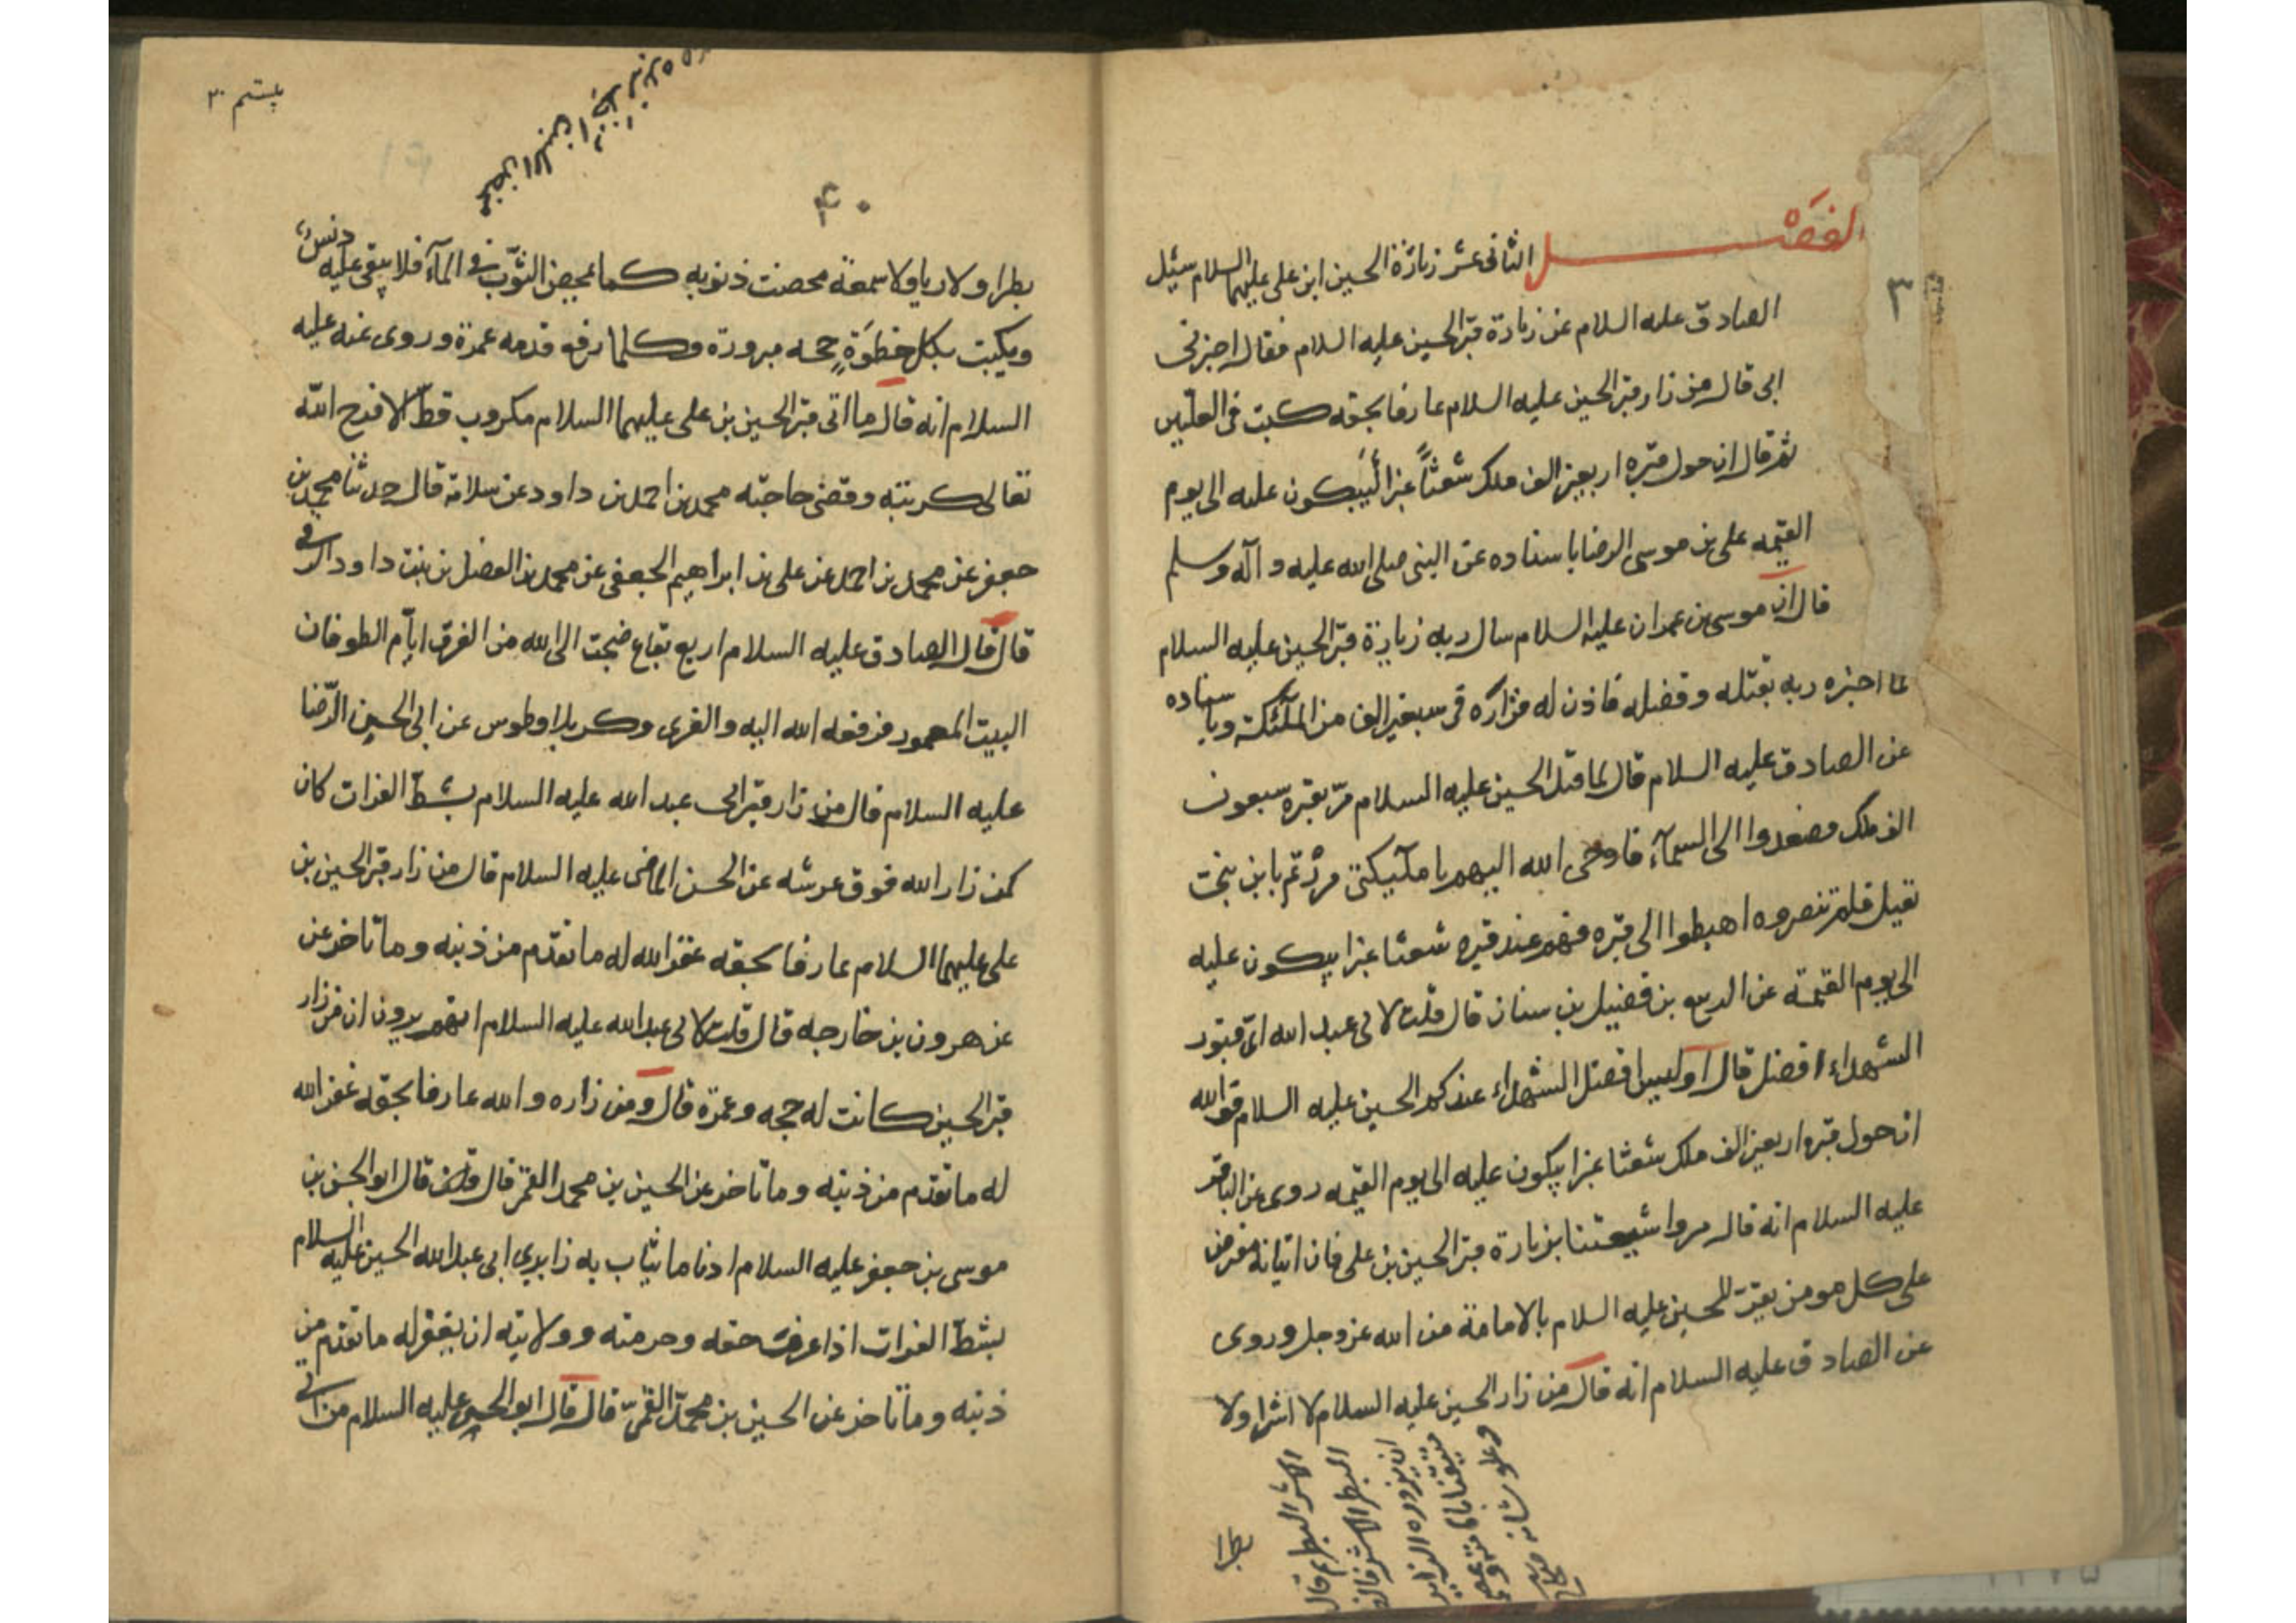 الفصل الثانی عشر زیارة الحسین ابن علی علیهما السلام سئیل
الصادق علیه السلام عن زیارة قبر الحسین علیه السلام فقال اخبرنی
ابی قال من زار قبر الحسین علیه السلام عارفا بحقه کتب فی العلیین
ثم قال ان حول قبره اربعین الف ملک شعثاً غبراً یبکون علیه الی یوم
القیمه علی بن موسی الرضا باسناده عن النبی صلی الله علیه و آله وسلم
قال ان موسی بن عمران علیه السلام سال ربه زیارة قبر الحسین علیه السلام
لما اخبره ربه بقتله و فضله فاذن له فزاره فی سبعین الف من الملئکة وباسناده
عن الصادق علیه السلام قال لما قتل الحسین علیه السلام مرّ بقبره سبعون
الف ملک وصعدوا الی السمآء فاوحی الله الیهم یا ملآیکتی مررتم بابن بنت
نبی قتیل فلم تنصروه اهبطوا الی قبره فهم عند قبره شعثا غبرا یبکون علیه
الی یوم القیمة عن الربیع بن فضیل بن سنان قال قلت لابی عبد الله ایّ قبور
الشهداء افضل قال اولیس افضل الشهداء عندکم الحسین علیه السلام فوالله
ان حول قبره اربعین الف ملک شعثا غبرا یبکون علیه الی یوم القیمه روی عن الباقر
علیه السلام انه قال مروا شیعتنا بزیارة قبر الحسین بن علی فان اتیانه مفرض
علی کل مومن یقرّ للحسین علیه السلام بالامامة من الله عز وجل وروی
عن الصادق علیه السلام انه قال من زار الحسین علیه السلام لا اشرا ولا
بطرا
۳
۴۰
بطرا ولا ریا ولا سمعة محصت ذنوبه کما یمحص الثوب فی المآء فلا یبقی علیه دنس
ویکتب بکل خطوة حجه مبرورة وکلما رفع قدمه عمرة وروی عنه علیه
السلام انه قال ما اتی قبر الحسین بن علی علیهما السلام مکروب قطّ الا فرح الله
تعالی کربته وقضی حاجته محمد بن احمد بن داود عن سلامة قال حدثنا محمد بن
جعفر عن محمد بن احمد عن علی بن ابراهیم الجعفی عن محمد بن الفضل بن بنت داود الرقی
قال قال الصادق علیه السلام اربع بقاع ضجت الی الله من الغرق ایآم الطوفان
البیت المعمور فرفعه الله الیه والغری وکربلا وطوس عن ابی الحسین الرّضا
علیه السلام قال من زار قبر ابی عبد الله علیه السلام بشطّ الفرات کان
کمن زار الله فوق عرشه عن الحسن الماضی علیه السلام قال من زار قبر الحسین بن
علی علیهما السلام عارفا بحقه غفر الله له ما تقدم من ذنبه وما تاخر عن
عن هرون بن خارجه قال قلت لابی عبد الله علیه السلام انهم یرون ان من زار
قبر الحسین کانت له حجه وعمرة قال ومن زاره والله عارفا بحقه غفر الله
له ما تقدم من ذنبه وما تاخر عن الحسین بن محمد القمی قال قال ابو الحسن بن
موسی بن جعفر علیه السلام ادنا ما یثاب به زایری ابی عبد الله الحسین علیه السلام
بشطّ الفرات اذا عرف حقه وحرمته وولایته ان یغفر له ما تقدم من
ذنبه وما تاخر عن الحسین بن محمد القمیّ قال قال ابو الحسین علیه السلام من اتی